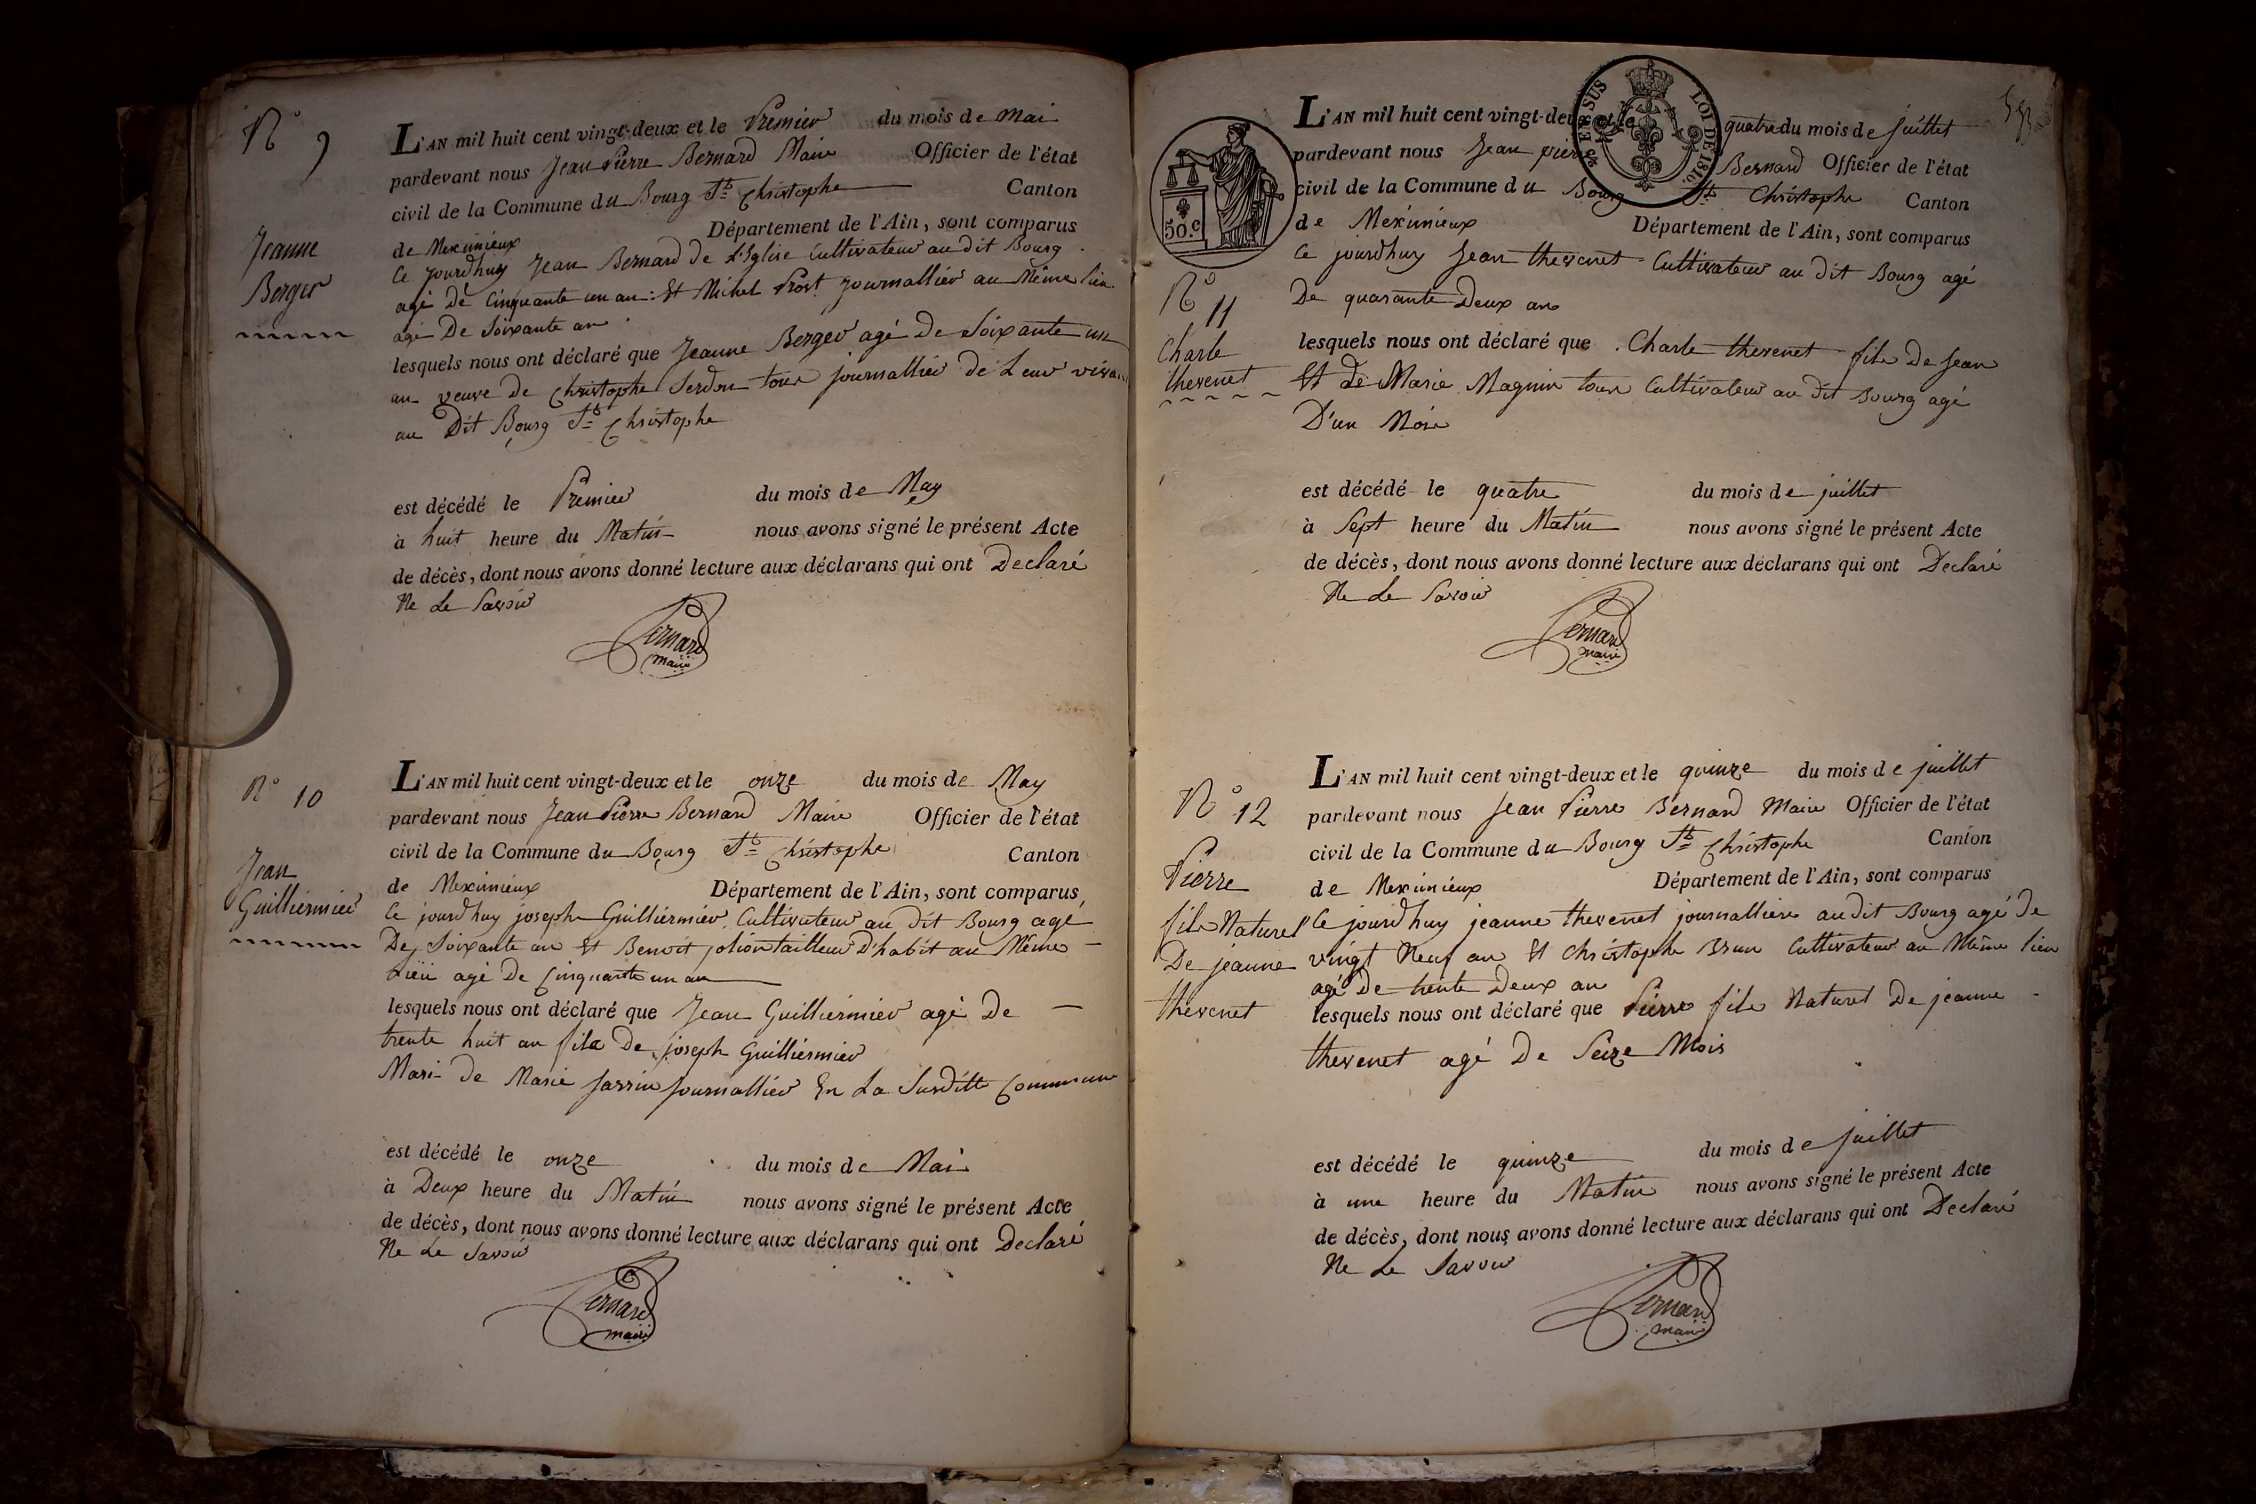 N° 9
Jeanne
Berger
L'AN mil huit cent vingt-deux et le Premier du mois de Mai
pardevant nous Jean Pierre Bernard Maire Officier de l'état
civil de la Commune du Bourg St Christophe Canton
de Meximieux Département de l'Ain, sont comparus
Ce jourdhuy Jean Bernard de l'Eglise Cultivateur au dit Bourg
agé de Cinquante un an : Et Michel Prost journallier au Même lieu
agé De Soixante an
lesquels nous ont déclaré que Jeanne Berger agé De Soixante un
an veuve de Christophe Serdon tous journallier de Leur vivan
au Dit Bourg St Christophe
est décédé le Premier du mois de May
à huit heure du Matin nous avons signé le présent Acte
de décès, dont nous avons donné lecture aux déclarans qui ont Declaré
Ne Le Savoir
Bernard
maire
N° 10
Jean
Guilliermier
L'AN mil huit cent vingt-deux et le onze du mois de May
pardevant nous Jean Pierre Bernard Maire Officier de l'état
civil de la Commune du Bourg St Christophe Canton
de Meximieux Département de l'Ain, sont comparus
Ce jourdhuy joseph Guilliermier Cultivateur au dit Bourg agé
De Soixante an Et Benoit jolion tailleur D'habit au Même
Lieu agé De Cinquante un an
lesquels nous ont déclaré que Jean Guilliermier agé De
trente huit an fils De joseph Guilliermier
Mari de Marie Jarrin journallier En La Susditte Commune
est décédé le onze du mois de Mai
à Deux heure du Matin nous avons signé le présent Acte
de décès, dont nous avons donné lecture aux déclarans qui ont Declaré
Ne Le Savoir
Bernard
maire
VERSUS LOI DE 1816
50.c
L'AN mil huit cent vingt-deux et le quatre du mois de juillet
pardevant nous Jean pierre Bernard Officier de l'état
civil de la Commune du Bourg St Christophe Canton
de Meximieux Département de l'Ain, sont comparus
Ce jourdhuy Jean thevenet Cultivateur au dit Bourg agé
De quarante Deux an
N° 11
Charle
thevenet
lesquels nous ont déclaré que Charle thevenet fils De Jean
Et de Marie Magnin tous Cultivateur au dit Bourg agé
D'un Mois
est décédé le quatre du mois de juillet
à Sept heure du Matin nous avons signé le présent Acte
de décès, dont nous avons donné lecture aux déclarans qui ont Declaré
Ne Le Savoir
Bernard
maire
N° 12
Pierre
fils Naturel
De jeanne
thevenet
L'AN mil huit cent vingt-deux et le quinze du mois de juillet
pardevant nous Jean Pierre Bernard Maire Officier de l'état
civil de la Commune du Bourg St Christophe Canton
de Meximieux Département de l'Ain, sont comparus
Ce jourdhuy jeanne thevenet journalliere au dit Bourg agé de
vingt Neuf an Et Christophe Brun Cultivateur au Même lieu
agé De trente Deux an
lesquels nous ont déclaré que Pierre fils Naturel De jeanne
thevenet agé De Seize Mois
est décédé le quinze du mois de juillet
à une heure du Matin nous avons signé le présent Acte
de décès, dont nous avons donné lecture aux déclarans qui ont Declaré
Ne Le Savoir
Bernard
maire